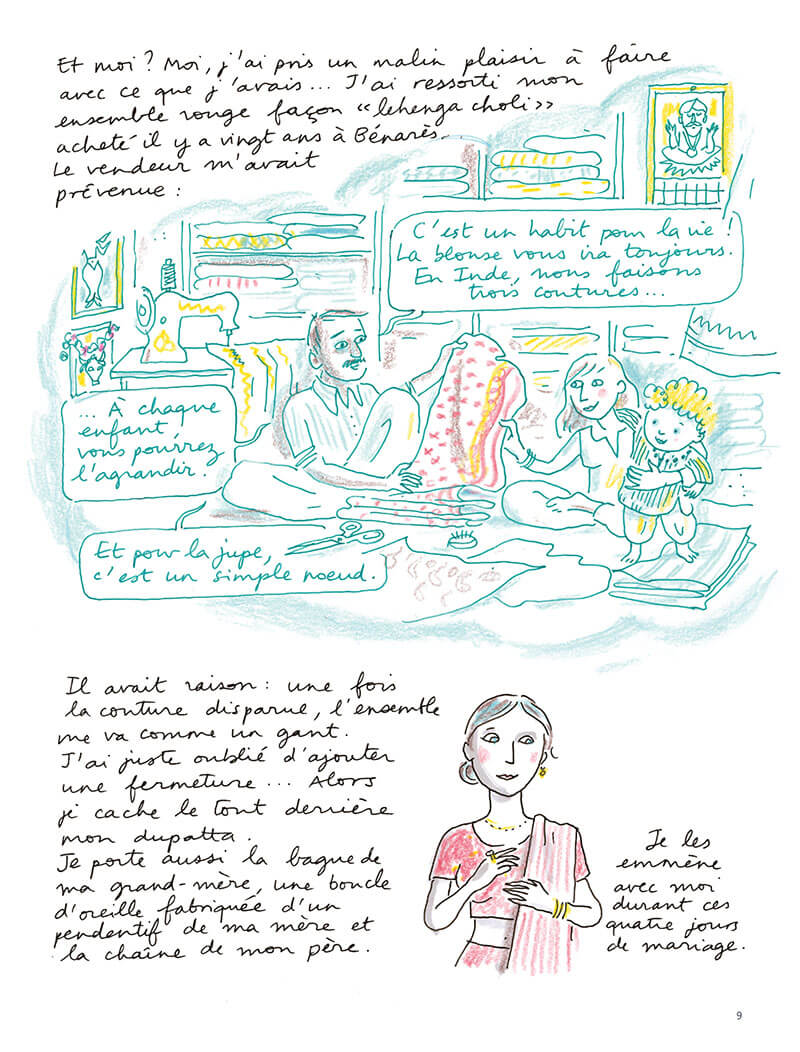 Et moi ? Moi, j'ai pris un malin plaisir à faire
avec ce que j'avais... J'ai ressorti mon
ensemble rouge façon «lehenga choli»
acheté il y a vingt ans à Bénarès.
Le vendeur m'avait
prévenue :
C'est un habit pour la vie !
La blouse vous ira toujours.
En Inde, nous faisons
trois coutures...
... À chaque
enfant,
vous pourrez
l'agrandir.
Et pour la jupe,
c'est un simple noeud.
Il avait raison : une fois
la couture disparue, l'ensemble
me va comme un gant.
J'ai juste oublié d'ajouter
une fermeture... Alors
je cache le tout derrière
mon dupatta.
Je porte aussi la bague de
ma grand-mère, une boucle
d'oreille fabriquée d'un
pendentif de ma mère et
la chaîne de mon père.
Je les
emmène
avec moi
durant ces
quatre jours
de mariage.
9